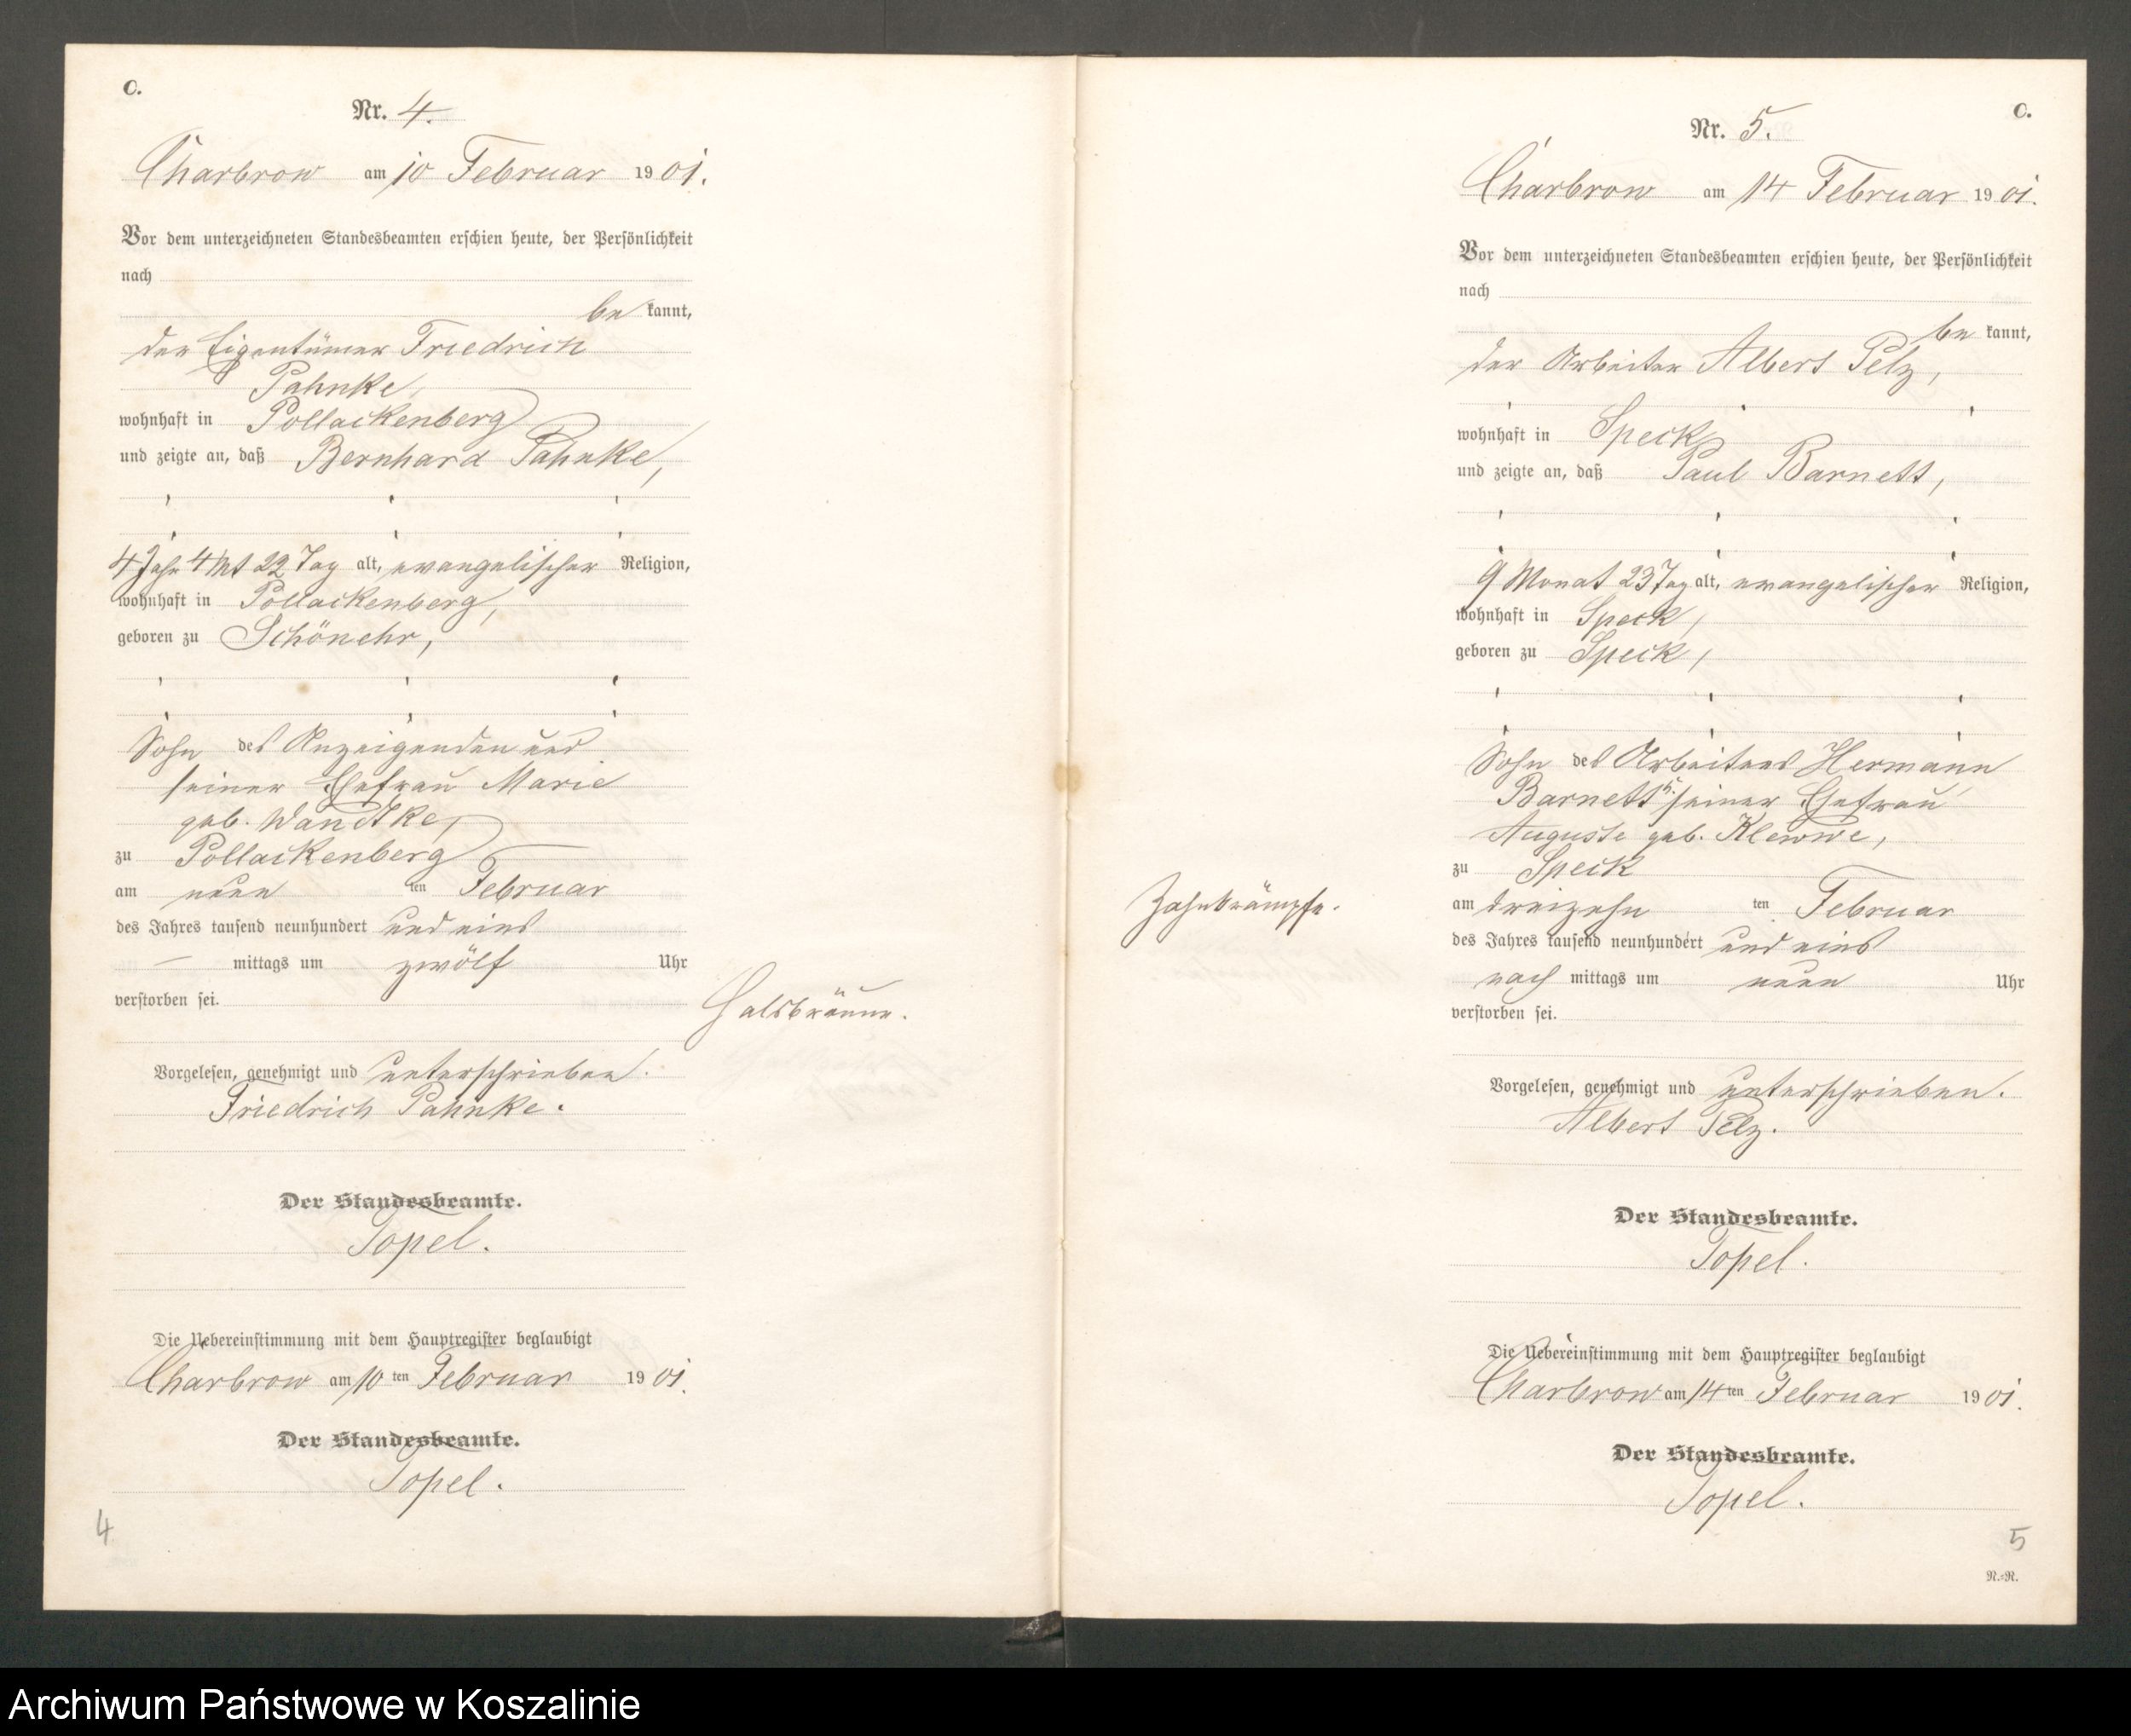 C.
Nr. 4.
Charbrow am 10 Februar 1901.
Vor dem unterzeichneten Standesbeamten erschien heute, der Persönlichkeit
nach
be kannt,
der Eigentümer Friedrich
Pahnke,
wohnhaft in Pollackenberg
und zeigte an, daß Bernhard Pahnke,
4 Jahr 4 Mt 22 Tag alt, evangelischer Religion,
wohnhaft in Pollackenberg,
geboren zu Schönehr,
Sohn des Anzeigenden und
seiner Ehefrau Marie
geb. Wandtke,
zu Pollackenberg
am neun ten Februar
des Jahres tausend neunhundert und eins
— mittags um zwölf Uhr
verstorben sei.
Halsbräune.
Vorgelesen, genehmigt und unterschrieben.
Friedrich Pahnke.
Der Standesbeamte.
Topel.
Die Uebereinstimmung mit dem Hauptregister beglaubigt
Charbrow am 10 ten Februar 1901.
Der Standesbeamte.
Topel.
4
C.
Nr. 5.
Charbrow am 14 Februar 1901.
Vor dem unterzeichneten Standesbeamten erschien heute, der Persönlichkeit
nach
be kannt,
der Arbeiter Albert Pelz,
wohnhaft in Speck
und zeigte an, daß Paul Barnett,
9 Monat 23 Tag alt, evangelischer Religion,
wohnhaft in Speck,
geboren zu Speck,
Sohn des Arbeiters Hermann
Barnett u. seiner Ehefrau
Auguste geb. Klewwe,
zu Speck
am dreizehn ten Februar
Zahnkrämpfe.
des Jahres tausend neunhundert und eins
nach mittags um neun Uhr
verstorben sei.
Vorgelesen, genehmigt und unterschrieben.
Albert Pelz.
Der Standesbeamte.
Topel.
Die Uebereinstimmung mit dem Hauptregister beglaubigt
Charbrow am 14 ten Februar 1901.
Der Standesbeamte.
Topel.
5
N.=N.
Archiwum Państwowe w Koszalinie